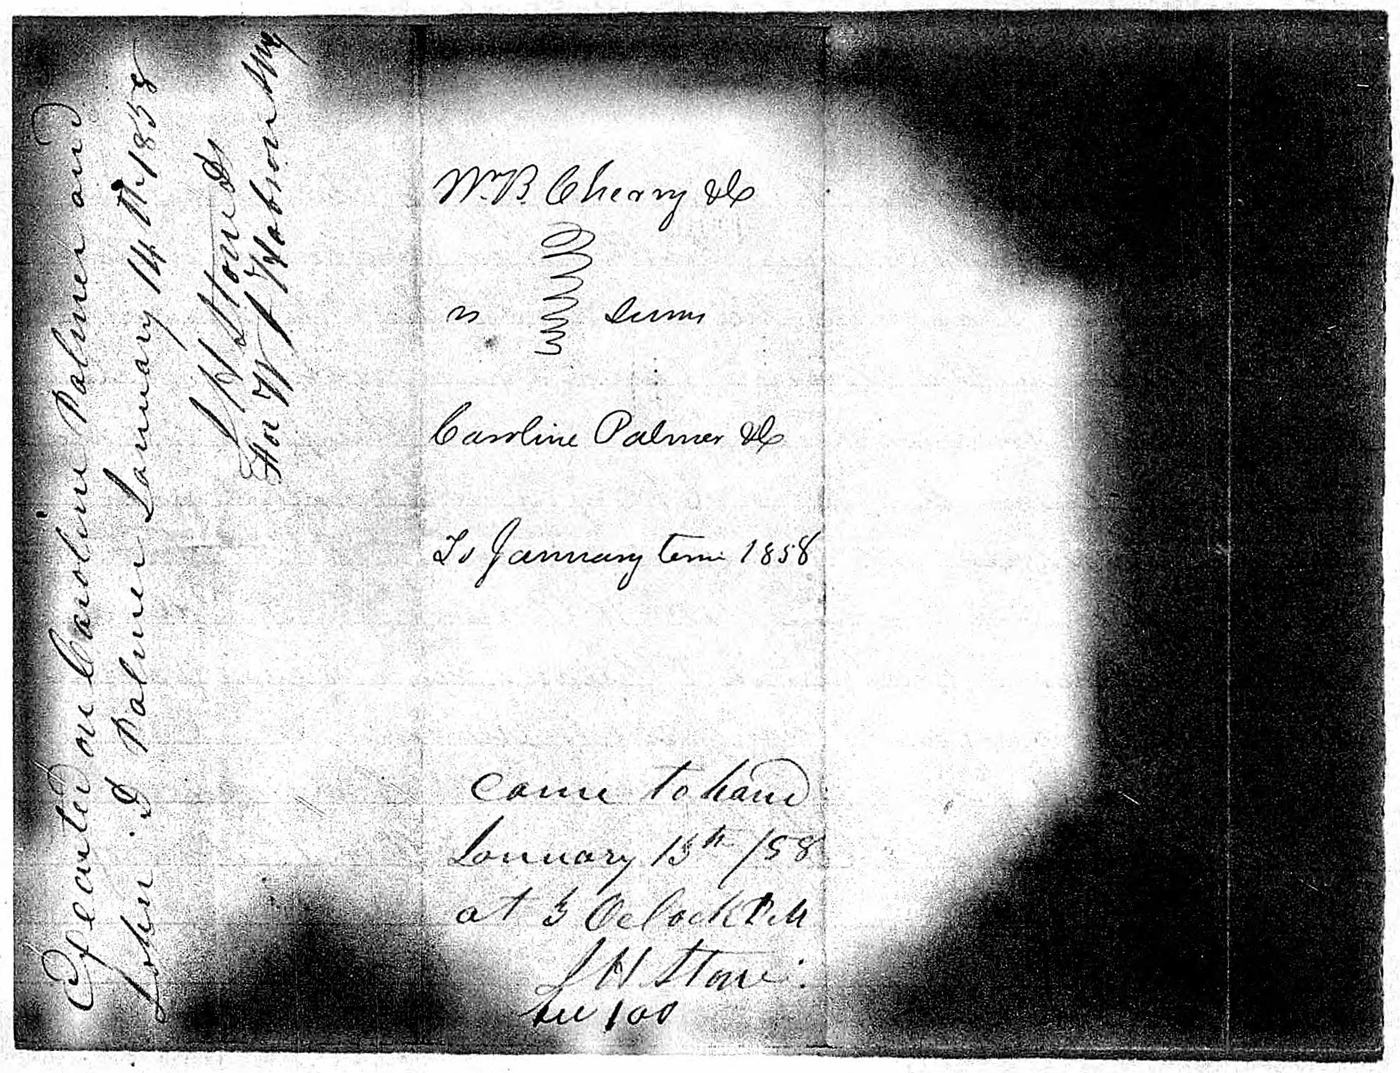 Wm B. Cherry &c
vs Sums
Caroline Palmer &c
To January term 1858
Came to hand
January 13th /58
at 3 Oclock P.M
J H Stone
fee 100
Executed on Caroline Palmer and
John D Palmer January 14th 1858
J H Stone DS
For W J Hobson Shff